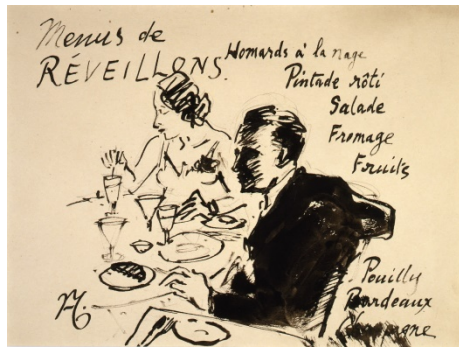 Menus de
RÉVEILLONS.
Homards à la nage
Pintade rôti
Salade
Fromage
Fruits
Pouilly
Bordeaux
Champagne